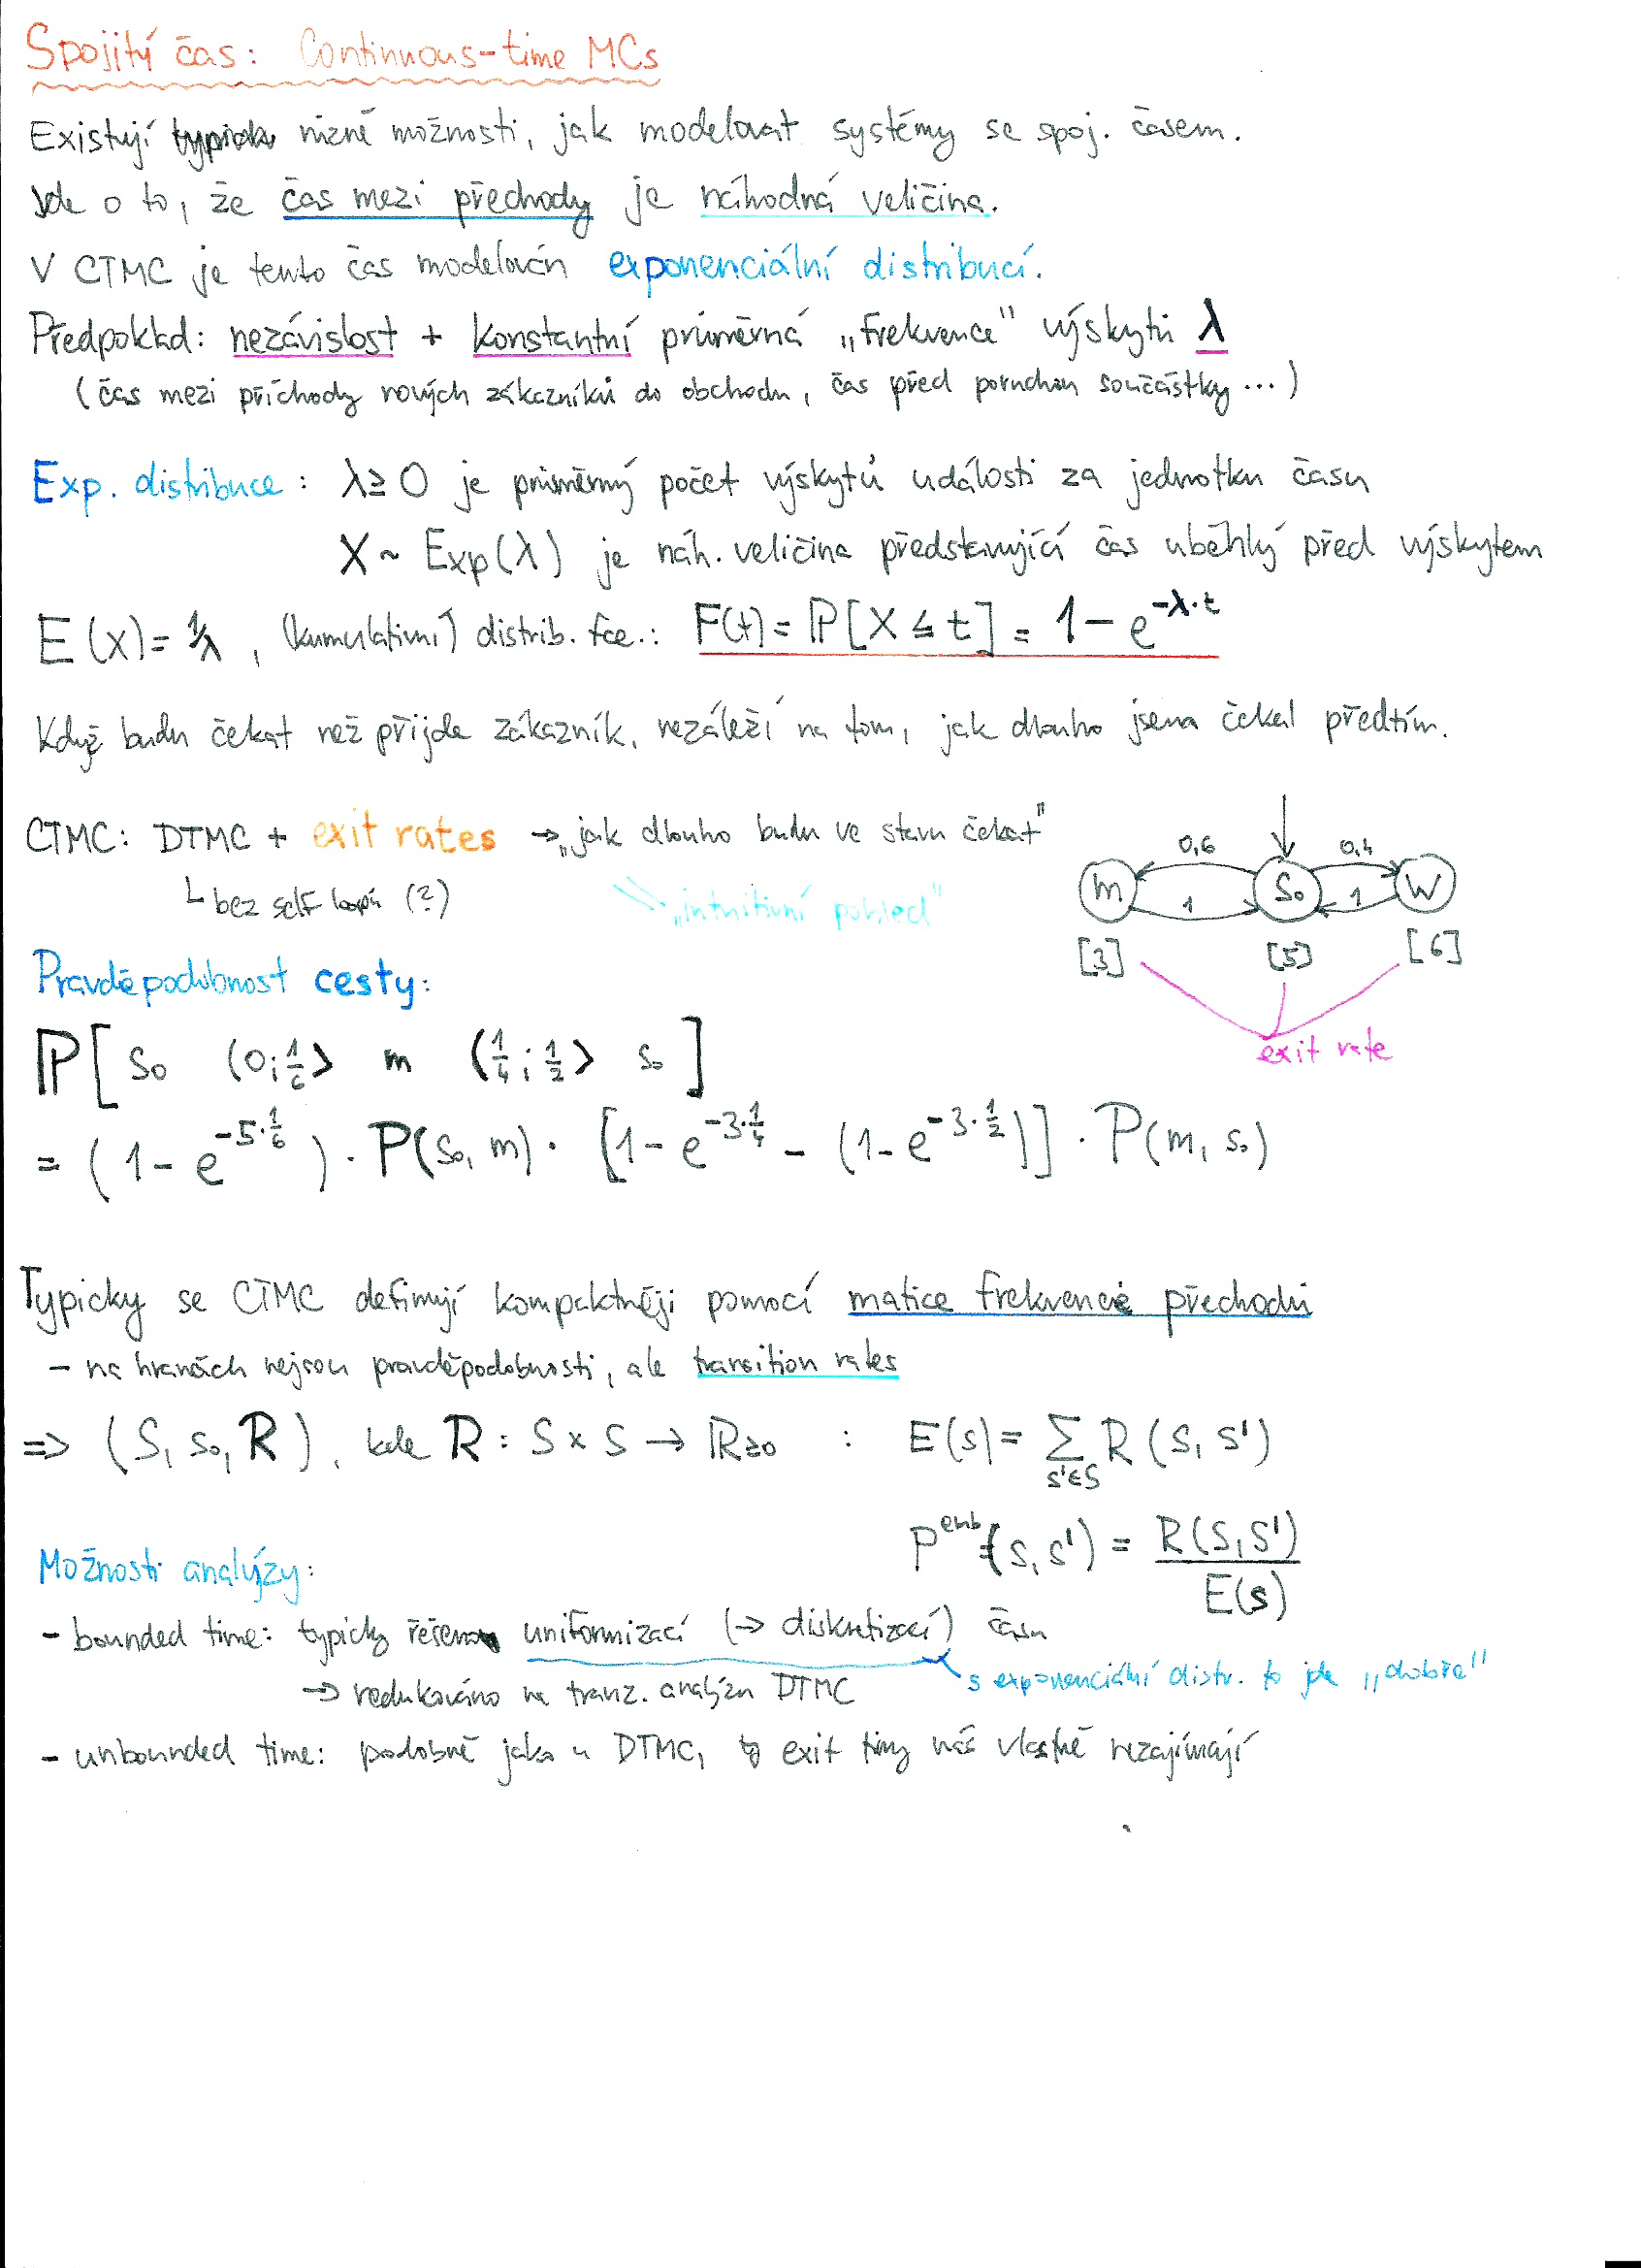 Spojitý čas: Continuous-time MCs
Existují různé možnosti, jak modelovat systémy se spoj. časem.
Jde o to, že čas mezi přechody je náhodná veličina.
V CTMC je tento čas modelován exponenciální distribucí.
Předpoklad: nezávislost + konstantní průměrná „frekvence" výskytů λ
(čas mezi příchody nových zákazníků do obchodu, čas před poruchou součástky ...)
Exp. distribuce: λ ≥ 0 je průměrný počet výskytů události za jednotku času
X ~ Exp(λ) je náh. veličina představující čas uběhlý před výskytem
E(X) = 1/λ, (kumulativní) distrib. fce.: F(t) = ℙ[X ≤ t] = 1 - e^{-λ·t}
Když budu čekat než přijde zákazník, nezáleží na tom, jak dlouho jsem čekal předtím.
CTMC: DTMC + exit rates → „jak dlouho budu ve stavu čekat"
↳ bez self loopů (?)
„intuitivní pohled"
0,6 0,4
m s₀ w
1 1
[3] [5] [6]
exit rate
Pravděpodobnost cesty:
ℙ[ s₀ (0; 1/6⟩ m (1/4; 1/2⟩ s₀ ]
= (1 - e^{-5·1/6}) · P(s₀, m) · [1 - e^{-3·1/4} - (1 - e^{-3·1/2})] · P(m, s₀)
Typicky se CTMC definují kompaktněji pomocí matice frekvencí přechodů
- na hranách nejsou pravděpodobnosti, ale transition rates
=> (S, s₀, R), kde R : S × S → ℝ≥0 : E(s) = ∑_{s'∈S} R(s, s')
P^{emb}(s, s') = R(s, s') / E(s)
Možnosti analýzy:
- bounded time: typicky řešeno uniformizací (→ diskretizací) času
s exponenciální distr. to jde „dobře"
→ redukováno na tranz. analýzu DTMC
- unbounded time: podobně jako u DTMC, exit timy nás vlastně nezajímají